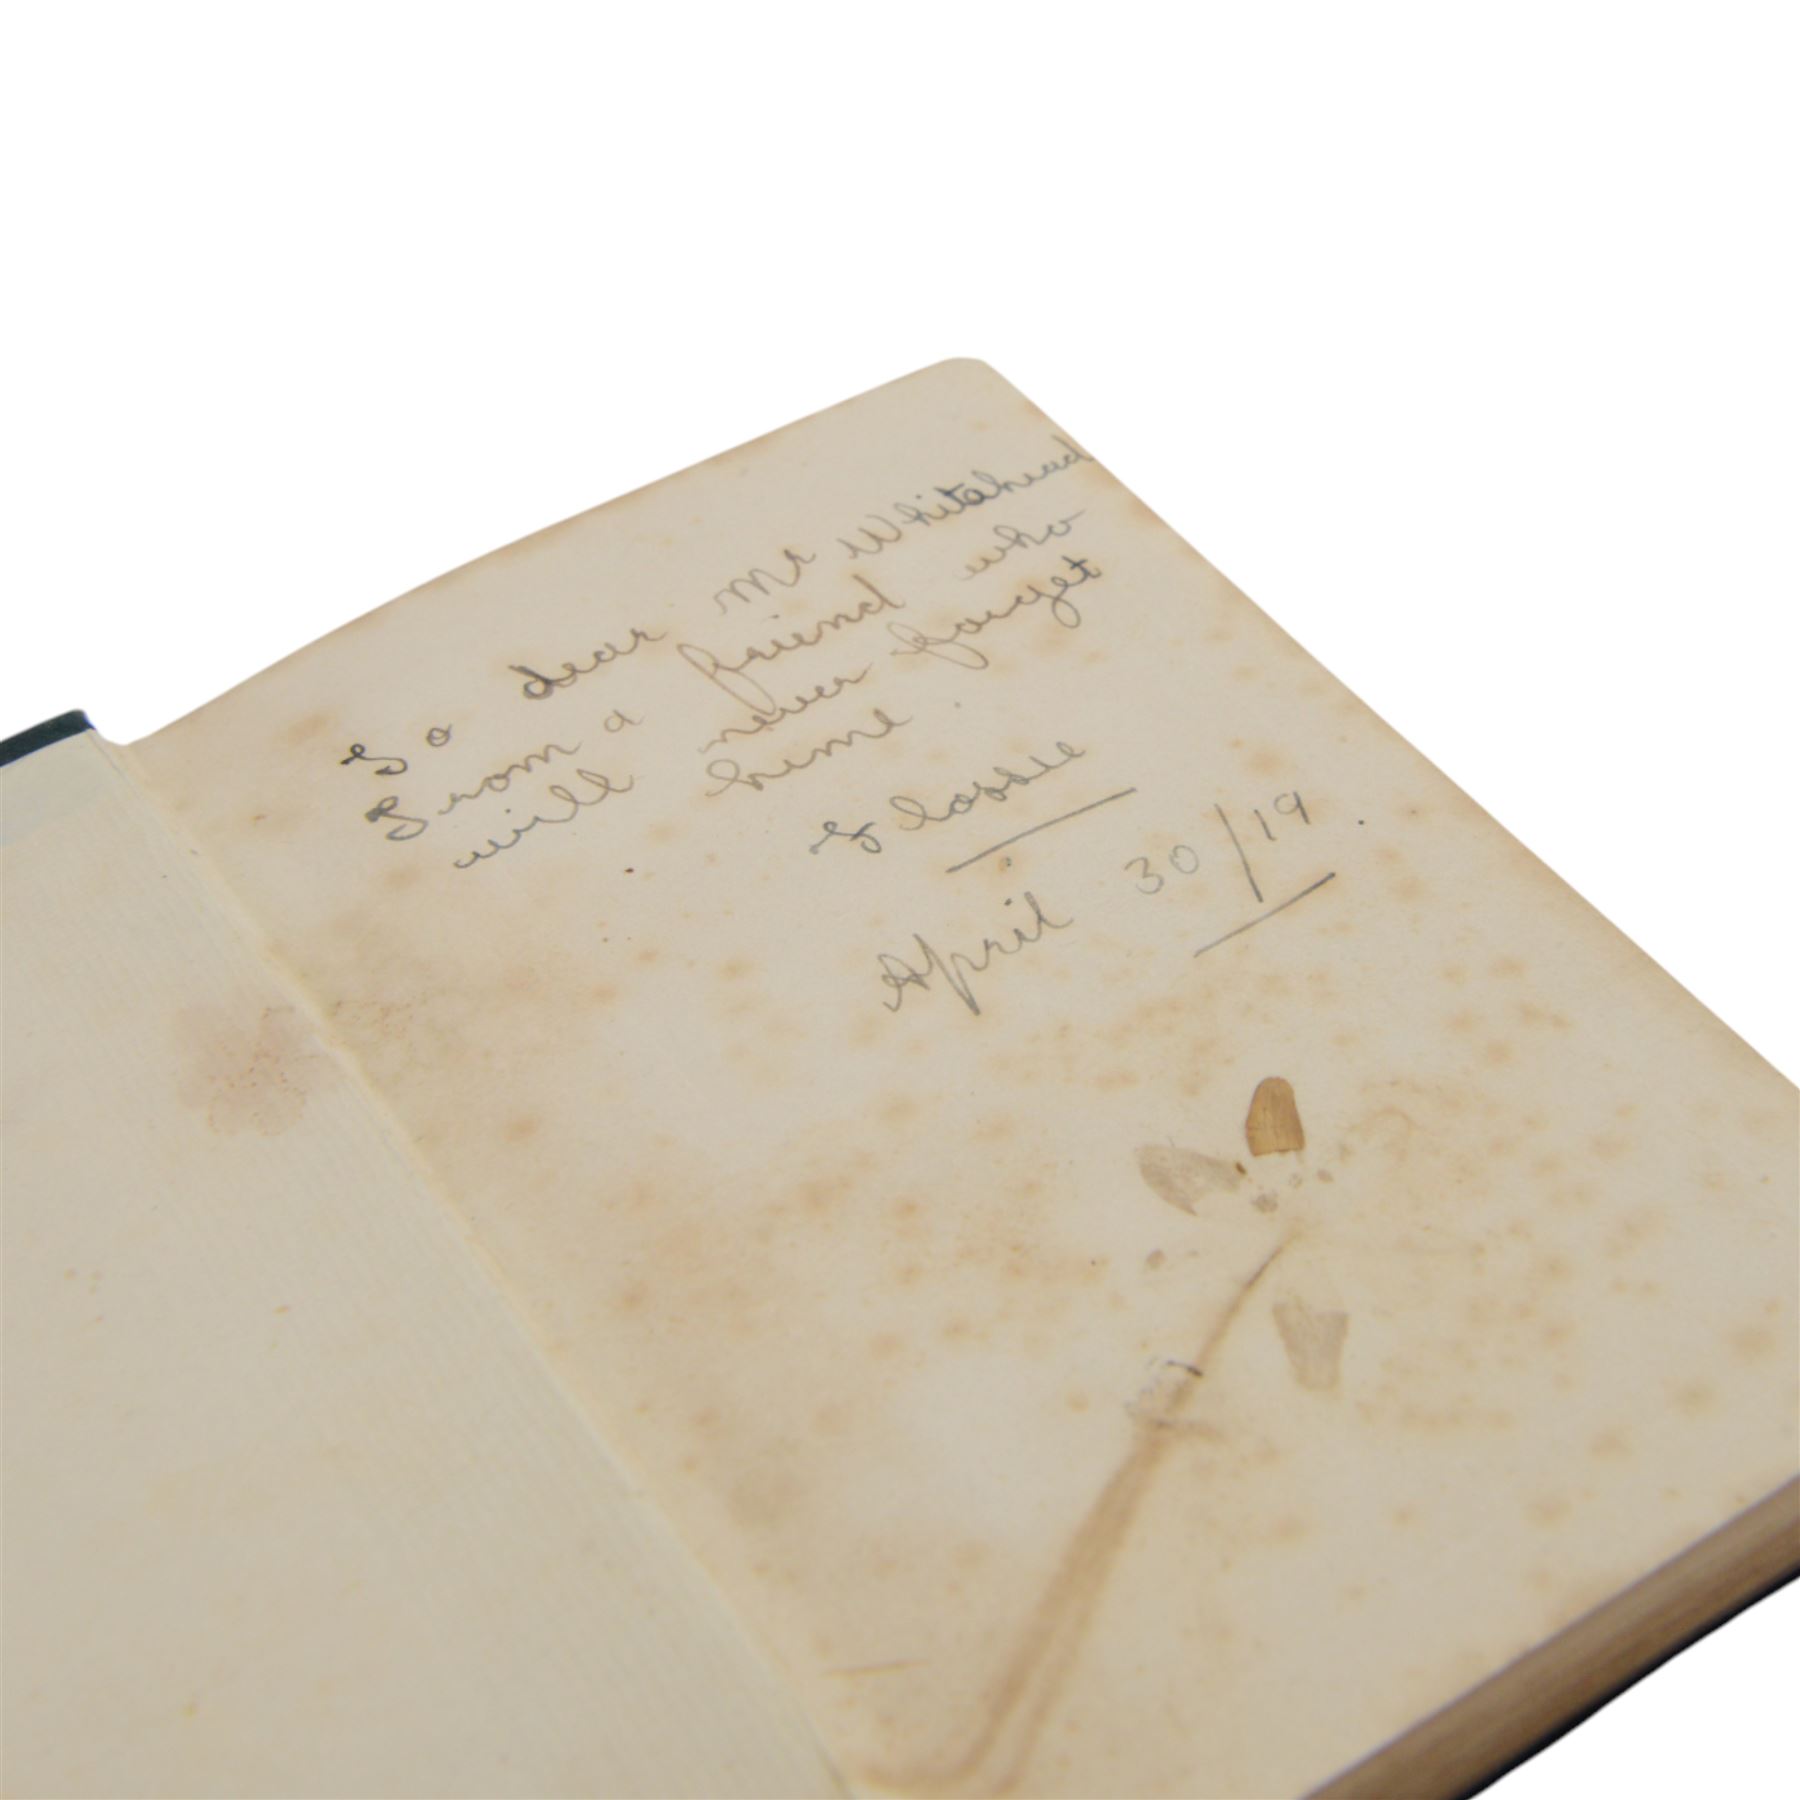 To dear Mr Whitehead
From a friend who
will never forget
hime.
Flossie
April 30/19.